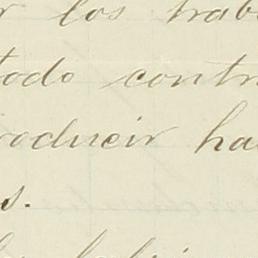 r los trab
todo contr
roducir ha
s.